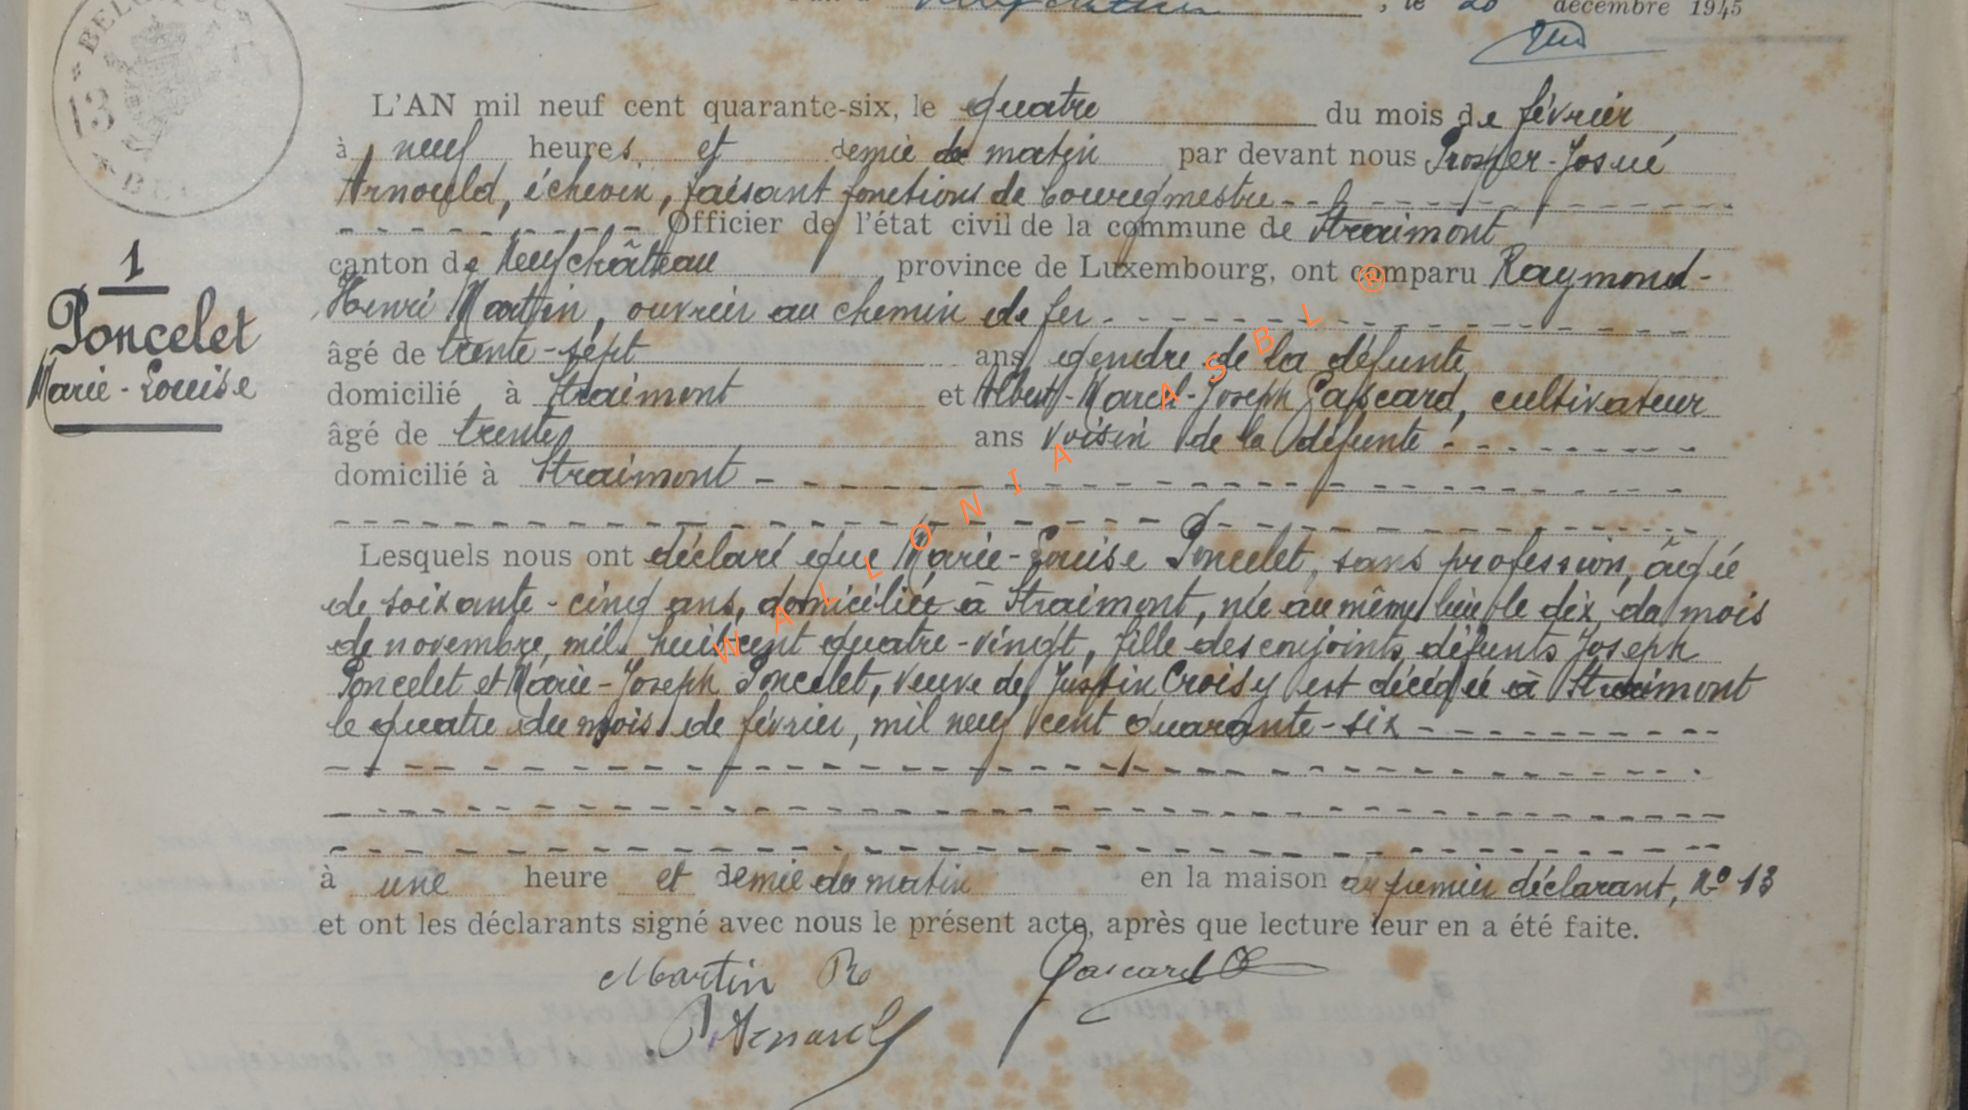 Neufchâteau, le 20 décembre 1945
BELGIQUE
13
L'AN mil neuf cent quarante-six, le quatre du mois de février
à neuf heures et demie du matin par devant nous Prosper-Josué
Arnould, échevin, faisant fonctions de bourgmestre
Officier de l'état civil de la commune de Straimont
canton de Neufchâteau, province de Luxembourg, ont comparu Raymond-
Henri Martin, ouvrier au chemin de fer
âgé de trente-sept ans, gendre de la défunte
domicilié à Straimont et Albert-Marcel-Joseph Gascard, cultivateur
âgé de trente ans voisin de la défunte
domicilié à Straimont
1
Poncelet
Marie-Louise
Lesquels nous ont déclaré que Marie-Louise Poncelet, sans profession, âgée
de soixante-cinq ans, domiciliée à Straimont, née au même lieu le dix du mois
de novembre, mil huit cent quatre-vingt, fille des conjoints défunts Joseph
Poncelet et Marie-Joseph Poncelet, veuve de Justin Croisy est décédée à Straimont
le quatre du mois de février, mil neuf cent quarante-six
à une heure et demie du matin en la maison du premier déclarant, No 13
et ont les déclarants signé avec nous le présent acte, après que lecture leur en a été faite.
Martin R Gascard
P. Arnould
WALLONIA ASBL ®